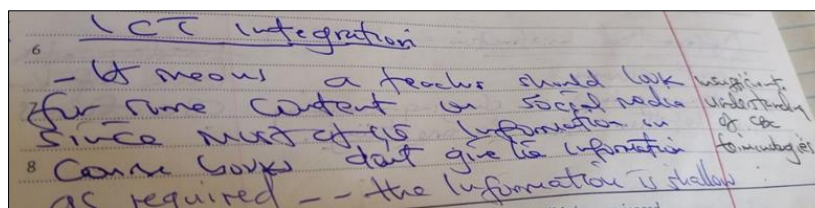 ICT Integration
6
- It means a teacher should look
for some content on social media
since most of the information in
8 Course books dont give the information
as required -- the information is shallow
insufficient
understanding
of CBC
terminologies